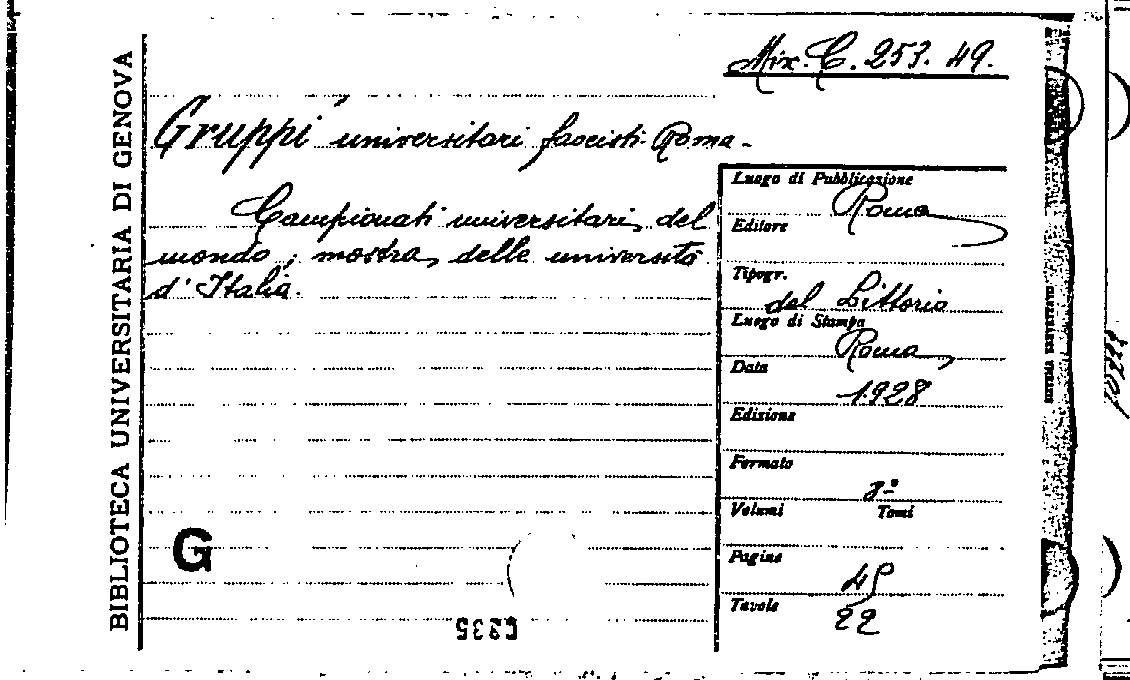 BIBLIOTECA UNIVERSITARIA DI GENOVA
Mix. C. 253. 49.
Gruppi universitari fascisti. Roma.
Campionati universitari del
mondo; mostra delle università
d'Italia.
Luogo di Pubblicazione
Roma
Editore
Tipogr.
del Littorio
Luogo di Stampa
Roma
Data
1928
Edizione
Formato
8º
Volumi Tomi
Pagine
45
Tavole
22
G